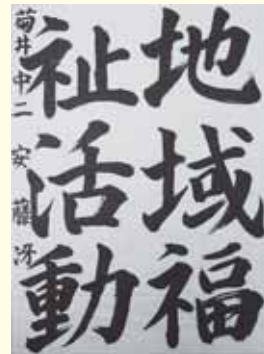 地域福
祉活動
菊井中二 安藤冴